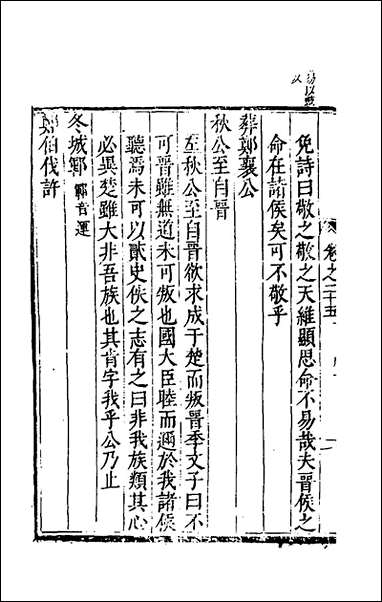 免詩曰敬之敬之天維顯思命不易哉夫晉侯之
命在諸侯矣可不敬乎
葬鄭襄公
秋公至自晉
至秋公至自晉欲求成于楚而叛晉季文子曰不
可晉雖無道未可叛也國大臣睦而邇於我諸侯
聽焉未可以貳史佚之志有之曰非我族類其心
必異楚雖大非吾族也其肯字我乎公乃止
冬城鄆 鄆音運
鄭伯伐許
卷之二十五